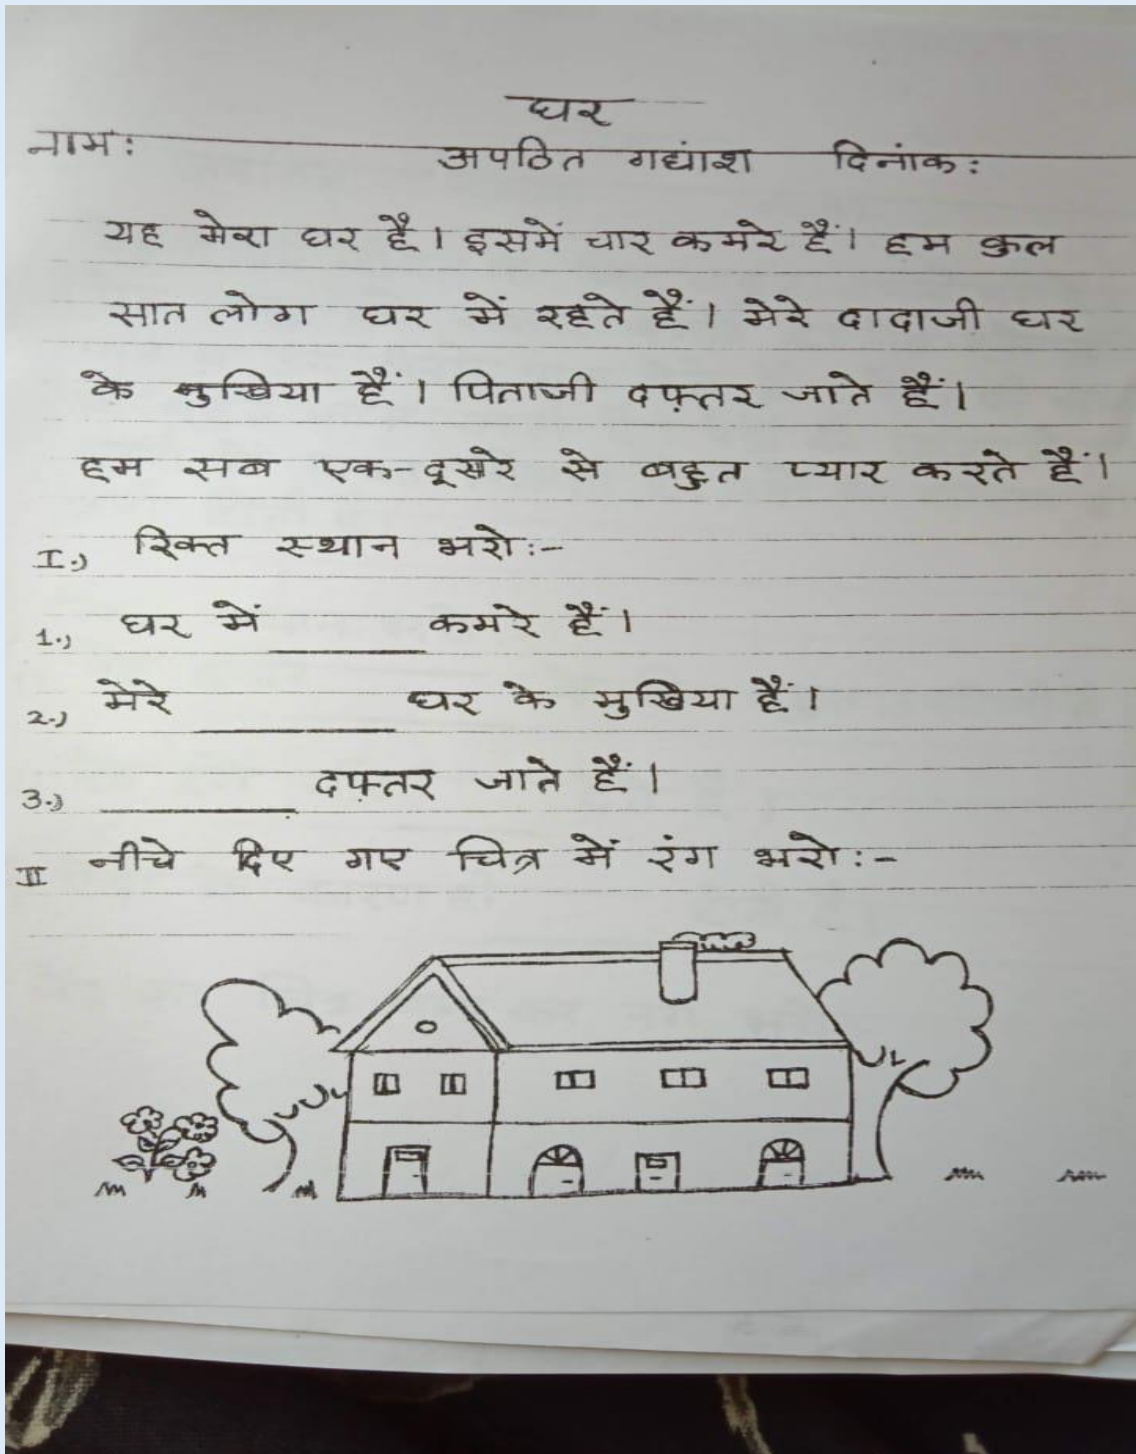 घर
नाम: अपठित गद्यांश दिनांक:
यह मेरा घर है। इसमें चार कमरे हैं। हम कुल
सात लोग घर में रहते हैं। मेरे दादाजी घर
के मुखिया हैं। पिताजी दफ़्तर जाते हैं।
हम सब एक-दूसरे से बहुत प्यार करते हैं।
I.) रिक्त स्थान भरो:-
1.) घर में ______ कमरे हैं।
2.) मेरे ______ घर के मुखिया हैं।
3.) ______ दफ़्तर जाते हैं।
II नीचे दिए गए चित्र में रंग भरो:-